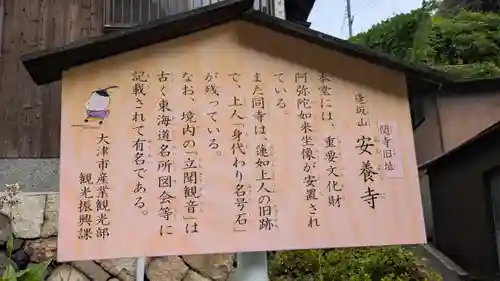 関寺旧址
逢坂山
安養寺
本堂には、重要文化財
阿弥陀如来坐像が安置され
ている。
また同寺は、蓮如上人の旧跡
で、上人「身代わり名号石」
が残っている。
なお、境内の「立聞観音」は
古く東海道名所図会等に
記載されて有名である。
大津市産業観光部
観光振興課